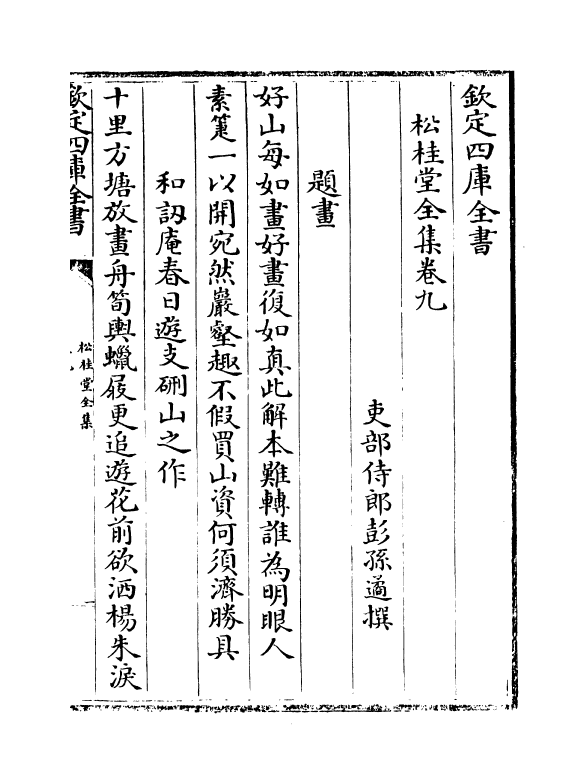 欽定四庫全書
松桂堂全集卷九
吏部侍郎彭孫遹撰
題畫
好山每如畫好畫復如真此解本難轉誰為明眼人
素箑一以開宛然巖壑趣不假買山資何須濟勝具
和訒庵春日遊支硎山之作
十里方塘放畫舟筍輿蠟屐更追遊花前欲洒楊朱淚
欽定四庫全書
松桂堂全集